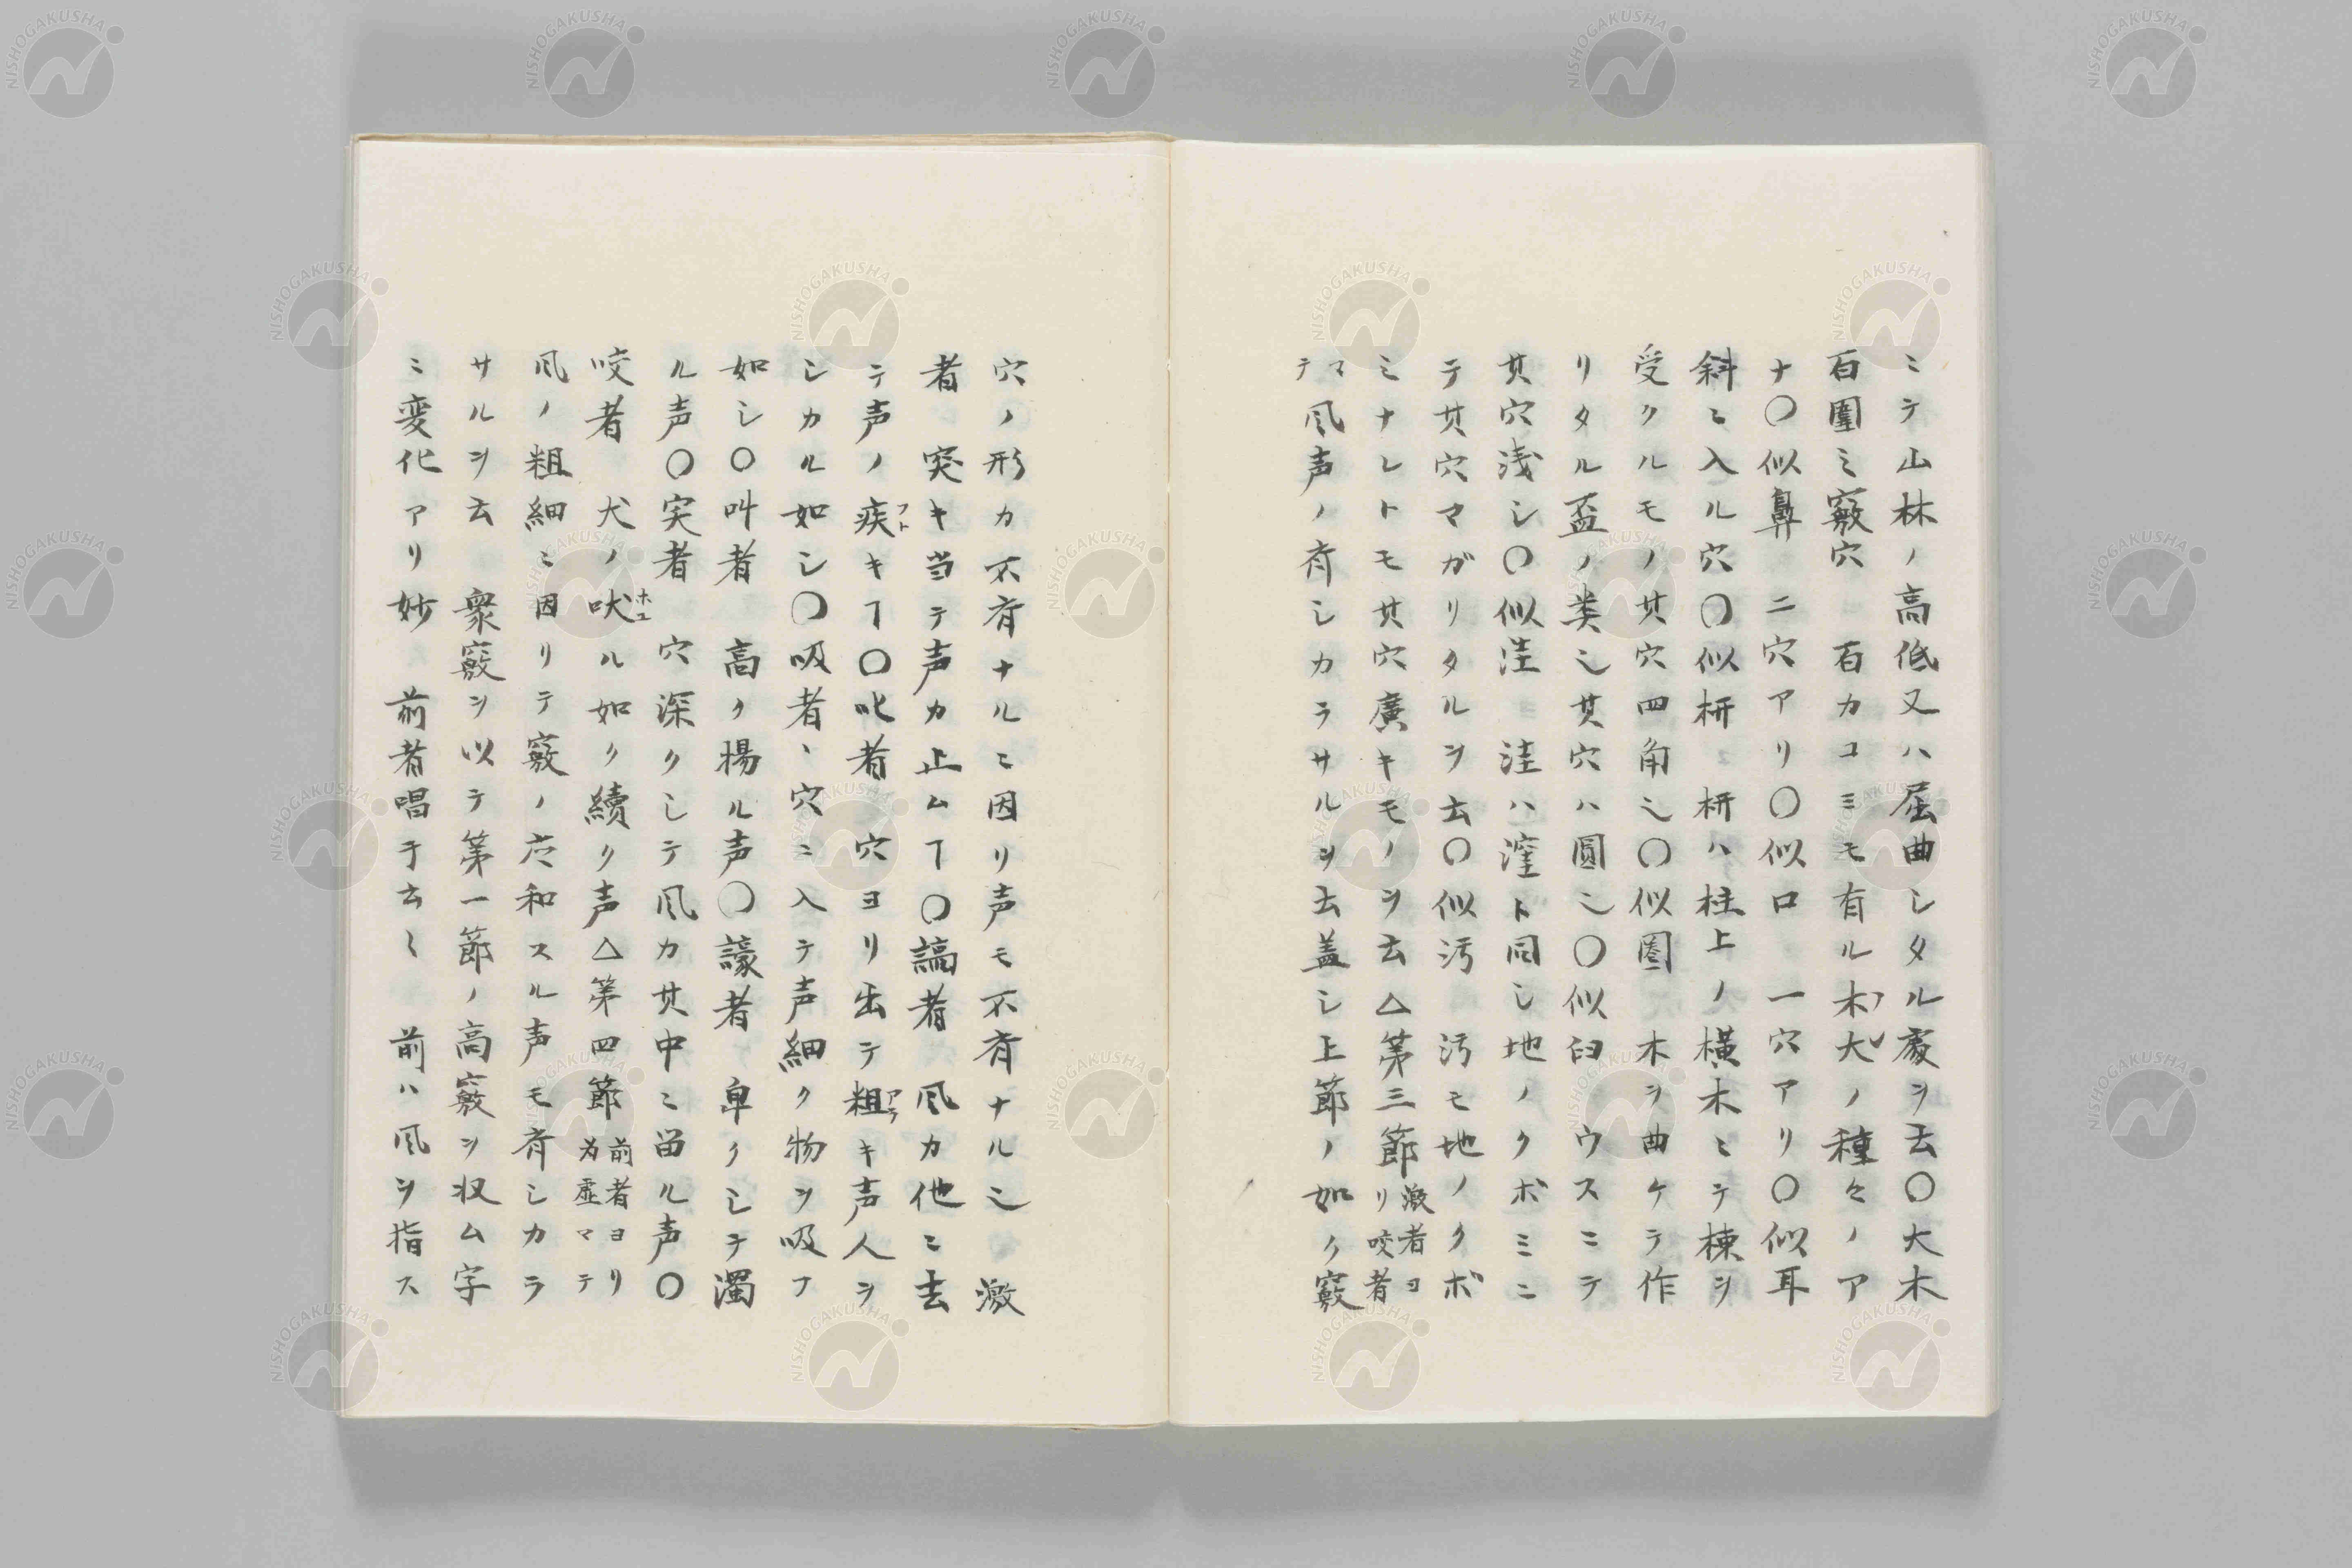 ミテ山林ノ高低又ハ屈曲シタル處ヲ云〇大木
百圍ミ竅穴 百カコミモ有ル木大ノ種々ノア
ナ〇似鼻 二穴アリ〇似口 一穴アリ〇似耳
斜ミ入ル穴〇似枅 枅ハ柱上ノ横木ミテ棟ヲ
受クルモノ其穴四角之〇似圏 木ヲ曲ケテ作
リタル盃ノ類之其穴ハ圓之〇似臼 ウスニテ
其穴浅シ〇似洼 洼ハ窪ト同シ地ノクボミニ
テ其穴マガリタルヲ云〇似汚 汚モ地ノクボ
ミナレトモ其穴廣キモノヲ云△第三節激者ヨリ咬者
マテ風声ノ斉シカラサルヲ云盖シ上節ノ如ク竅
穴ノ形カ不斉ナルミ因リ声モ不斉ナル之 激
者 突キ当テ声カ止ムヿ〇謞者 風カ他ミ去
テ声ノ疾キヿ〇叱者 穴ヨリ出テ粗キ声人ヲ
シカル如シ〇吸者、穴ニ入テ声細ク物ヲ吸フ
如シ〇叫者 高ク揚ル声〇譹者 卑クシテ濁
ル声〇実者 穴深クシテ風カ其中ミ留ル声〇
咬者 犬ノ吠ル如ク續ク声△第四節前者ヨリ为虚マテ
風ノ粗細ミ因リテ竅ノ应和スル声モ斉シカラ
サルヲ云 衆竅ヲ以テ第一節ノ高竅ヲ収ム字
ミ変化アリ妙 前者唱于云〻 前ハ風ヲ指ス